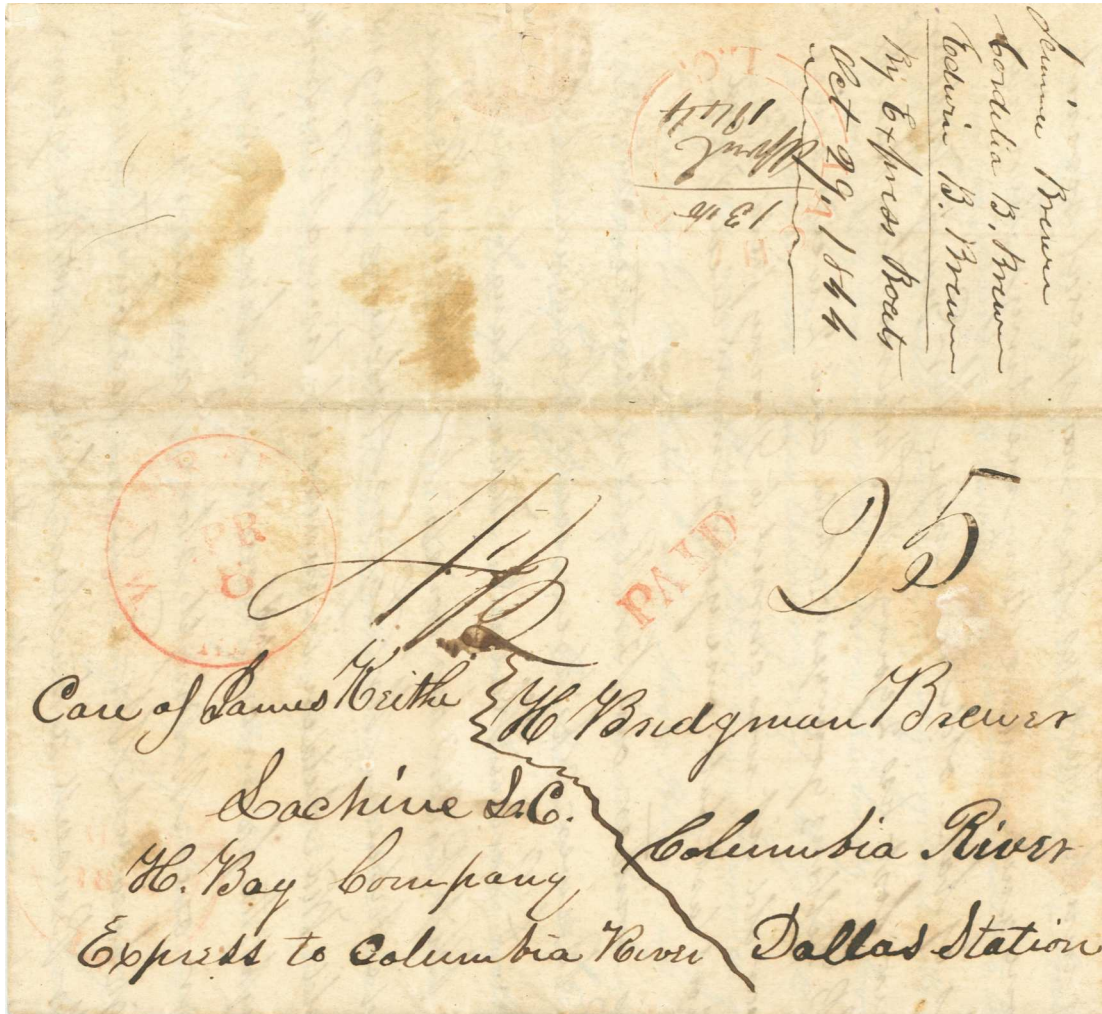 Brewer
Cordelia B. Brewer
Edwin B. Brewer
By Express Boats
Oct 29, 1844
L.C.
13th
April
1844
PR
8
PAID
25
Care of James Keithe
Lachine L.C.
H. Bay Company
Express to Columbia River
H Bridgman Brewer
Columbia River
Dallas Station